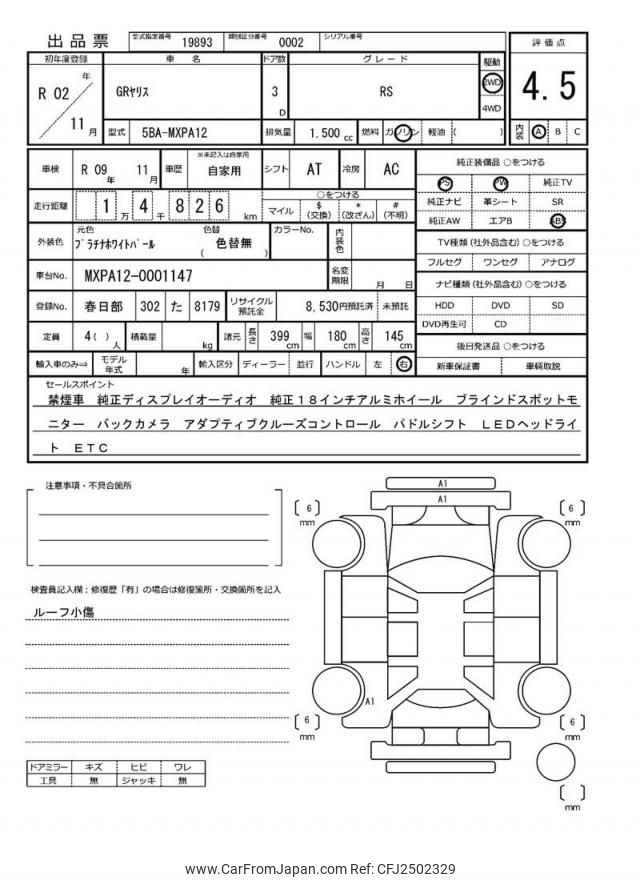 出品票
型式指定番号 19893 類別区分番号 0002 シリアル番号
初年度登録 車名 ドア数 グレード 駆動 評価点
R 02 年 11 月 GRﾔﾘｽ 3 D RS 2WD 4WD 4.5
型式 5BA-MXPA12 排気量 1.500 cc 燃料 ガソリン 軽油 ( ) 内装 A B C
車検 R 09 年 11 月 車歴 ※未記入は自家用 自家用 シフト AT 冷房 AC
純正装備品 ○をつける
PS PW 純正TV
純正ナビ 革シート SR
純正AW エアB ABS
走行距離 1 万 4 千 8 2 6 km ○をつける
マイル $ (交換) * (改ざん) # (不明)
外装色 元色 ﾌﾟﾗﾁﾅﾎﾜｲﾄﾊﾟｰﾙ 色替 ( 色替無 ) カラーNo. 内装色
TV種類 (社外品含む) ○をつける
フルセグ ワンセグ アナログ
車台No. MXPA12-0001147 名変期限 月 日
ナビ種類 (社外品含む) ○をつける
HDD DVD SD
DVD再生可 CD
登録No. 春日部 302 た 8179 リサイクル預託金 8,530円預託済 未預託
定員 4 ( ) 人 積載量 kg 諸元 長さ 399 cm 幅 180 cm 高さ 145 cm
後日発送品 ○をつける
新車保証書 車輌取説
輸入車のみ⇒ モデル年式 年 輸入区分 ディーラー 並行 ハンドル 左 右
セールスポイント
禁煙車 純正ディスプレイオーディオ 純正18インチアルミホイール ブラインドスポットモ
ニター バックカメラ アダプティブクルーズコントロール パドルシフト LEDヘッドライ
ト ETC
注意事項・不具合箇所
検査員記入欄：修復歴「有」の場合は修復箇所・交換箇所を記入
ルーフ小傷
ドアミラー キズ ヒビ ワレ
工具 無 ジャッキ 無
A1
A1
[ 6 ] mm
[ 6 ] mm
A1
[ 6 ] mm
[ 6 ] mm
[ ] mm
www.CarFromJapan.com Ref: CFJ2502329